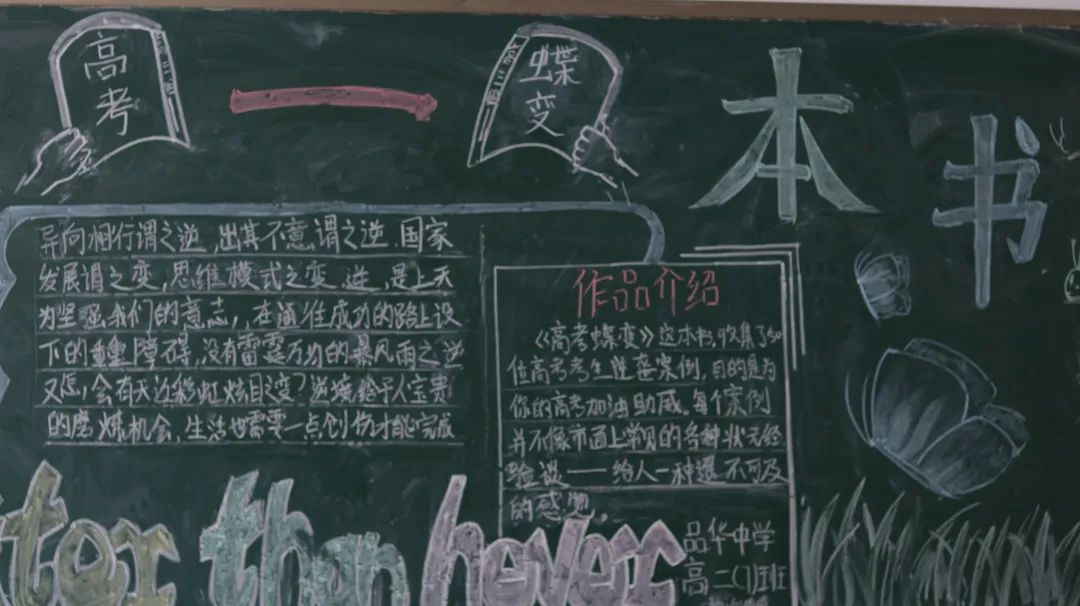 高考
蝶变
本书
异向相行谓之逆,出其不意谓之逆,国家
发展谓之变,思维模式之变。逆,是上天
为坚强我们的意志,在通往成功的路上设
下的重重障碍,没有雷霆万为的暴风雨之逆
又怎,会有天边彩虹炫目之变?逆境给予人宝贵
的磨炼机会,生活也需要一点创伤才能完成
作品介绍
《高考蝶变》这本书,收集了50
位高考考生逆袭案例,目的是为
你的高考加油助威。每个案例
并不像市面上常见的各种状元经
验谈——给人一种遥不可及
的感觉。
品华中学
高二(7)班
ter than never